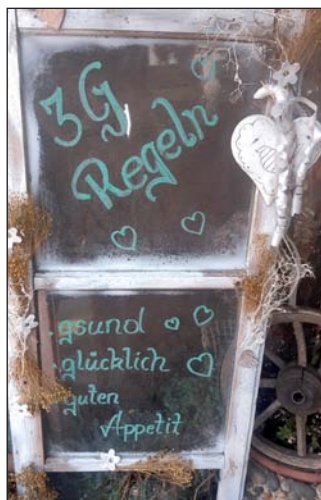 3G
Regeln
.gsund
.glücklich
.guten
Appetit